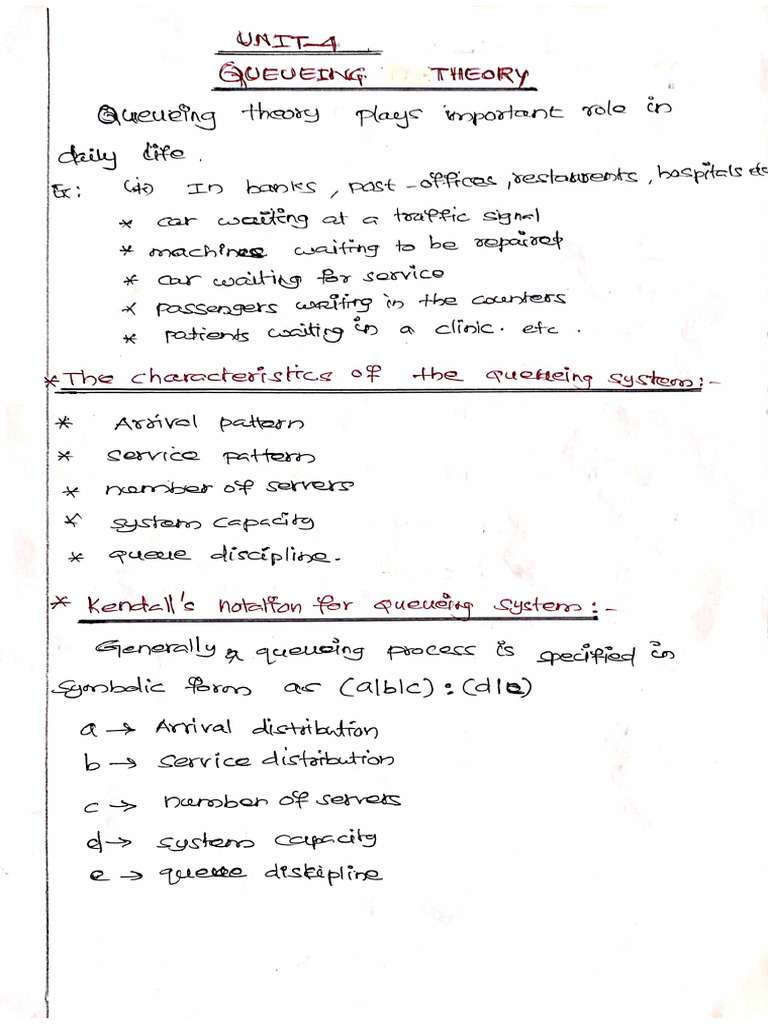 UNIT-4
QUEUEING THEORY
Queueing theory plays important role in
daily life.
Ex: In banks, post-offices, restaurents, hospitals etc
* car waiting at a traffic signal
* machines waiting to be repaired
* car waiting for service
* passengers waiting in the counters
* patients waiting in a clinic. etc.
* The characteristics of the queueing system:-
* Arrival pattern
* service pattern
* number of servers
* system capacity
* queue discipline.
* Kendall's notation for queueing system:-
Generally a queueing process is specified in
symbolic form as (a|b|c) : (d|e)
a → Arrival distribution
b → service distribution
c → number of servers
d → system capacity
e → queue diskipline